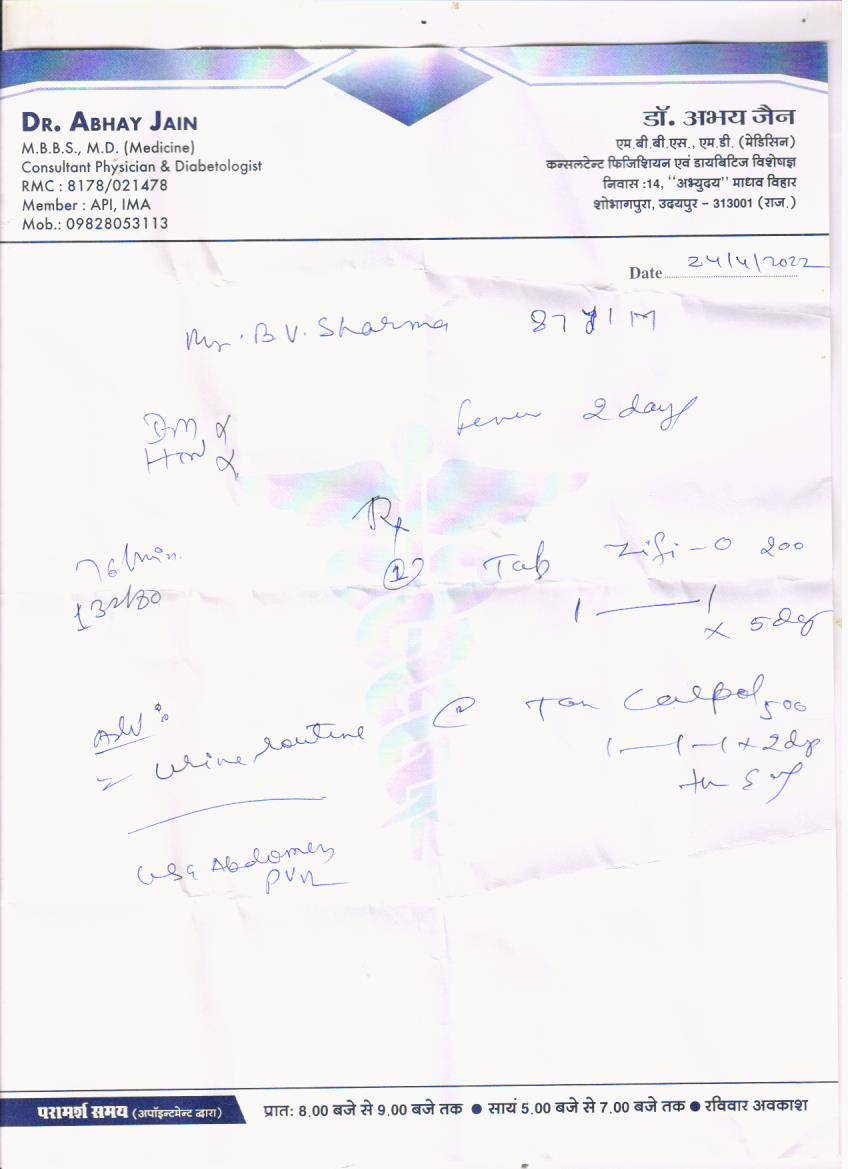 DR. ABHAY JAIN
M.B.B.S., M.D. (Medicine)
Consultant Physician & Diabetologist
RMC : 8178/021478
Member : API, IMA
Mob.: 09828053113
डॉ. अभय जैन
एम.बी.बी.एस., एम.डी. (मेडिसिन)
कन्सलटेन्ट फिजिशियन एवं डायबिटिज विशेषज्ञ
निवास :14, ‘‘अभ्युदय’’ माधव विहार
शोभागपुरा, उदयपुर – 313001 (राज.)
Date 24/4/2022
Mr. B V. Sharma 87 y/M
DM
HTN
fever 2 days
Rx
76/min.
132/80
① Tab Zifi-O 200
1 — 1
x 5 days
Adv :
Urine routine
② Tab Calpol 500
1 — 1 — 1 x 2 days
USG Abdomen
PVR
परामर्श समय (अपॉइन्टमेन्ट द्वारा) प्रात: 8.00 बजे से 9.00 बजे तक ● सायं 5.00 बजे से 7.00 बजे तक ● रविवार अवकाश